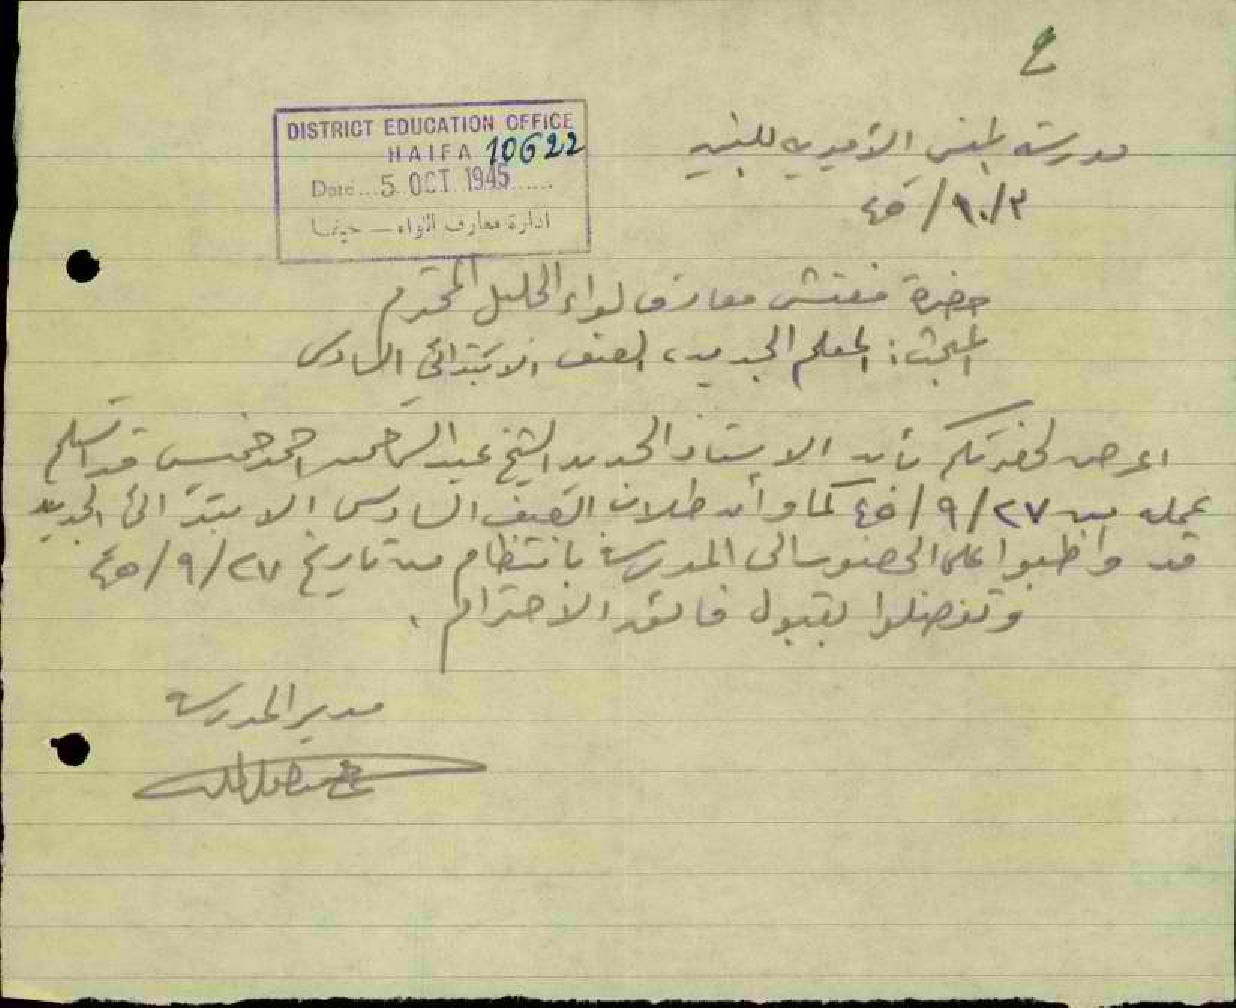 ع
DISTRICT EDUCATION OFFICE
HAIFA 10622
Date...5 OCT. 1945......
ادارة معارف اللواء — حيفا
مدرسة الاميرية للبنين
٤٥/١٠/٣
حضرة مفتش معارف لواء الجليل المحترم
المبحث: المعلم الجديد، الصف الابتدائي السادس
اعرض لحضرتكم بأن الاستاذ الجديد الشيخ عبد الرحمن احمد خميس قد استلم
عمله من ٤٥/٩/٢٧ كما وأن طلاب الصف السادس الابتدائي الجديد
قد واظبوا على الحضور الى المدرسة بانتظام من تاريخ ٤٥/٩/٢٧
وتفضلوا بقبول فائق الاحترام .
مدير المدرسة